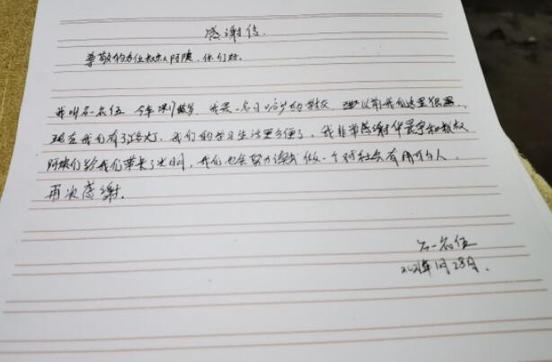 感谢信.
尊敬的各位叔叔阿姨, 你们好.
我叫石名伍 今年 岁, 我是一名 的 以前我们这里很黑.
现在我们有了路灯, 我们的学习生活更方便了, 我非常感谢华 叔叔
阿姨们给我们带来了光明, 我们也会努力读书 做一个对社会有用的人,
再次感谢.
石名伍
2021年1月28日.